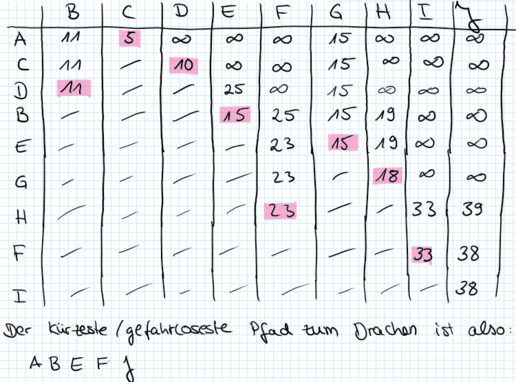 B C D E F G H I J
A 11 5 ∞ ∞ ∞ 15 ∞ ∞ ∞
C 11 – 10 ∞ ∞ 15 ∞ ∞ ∞
D 11 – – 25 ∞ 15 ∞ ∞ ∞
B – – – 15 25 15 19 ∞ ∞
E – – – – 23 15 19 ∞ ∞
G – – – – 23 – 18 ∞ ∞
H – – – – 23 – – 33 39
F – – – – – – – 33 38
I – – – – – – – – 38
Der kürzeste/gefahrloseste Pfad zum Drachen ist also:
A B E F J